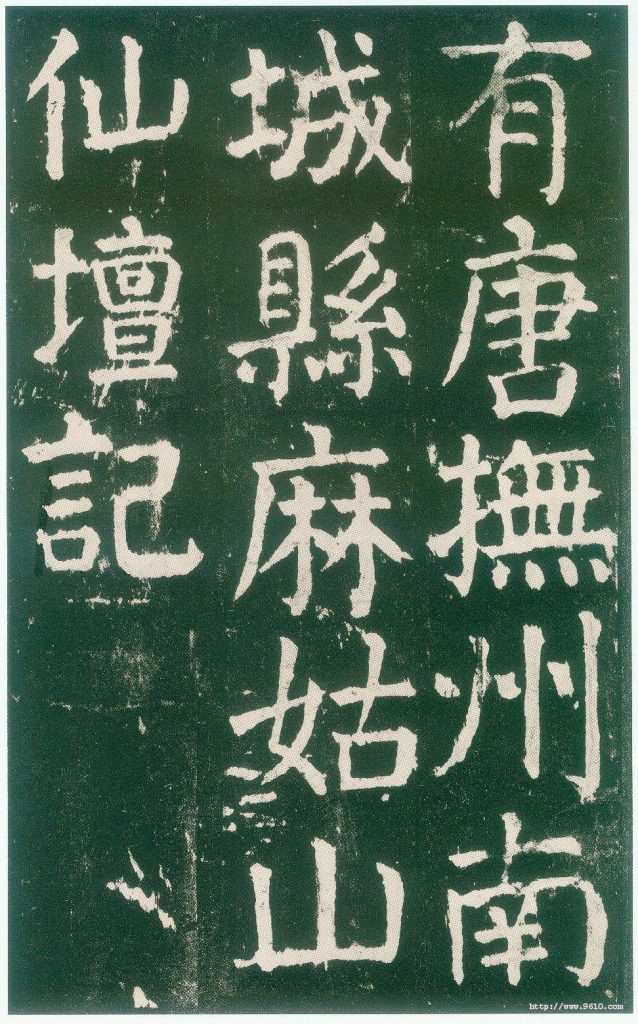 有唐撫州南
城縣麻姑山
仙壇記
http://www.9610.com